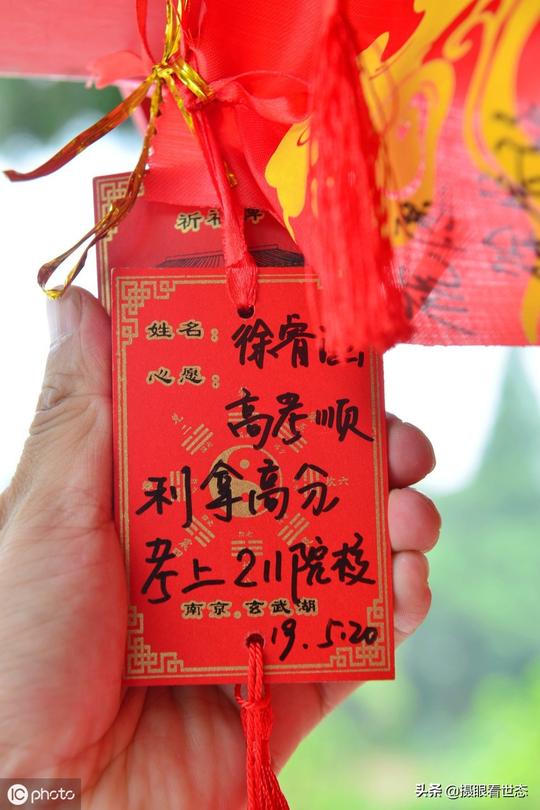 祈福牌
姓名：徐睿涵
心愿：
高考顺
利拿高分
考上211院校
南京.玄武湖
19.5.20
iC photo
头条 @摄眼看世态